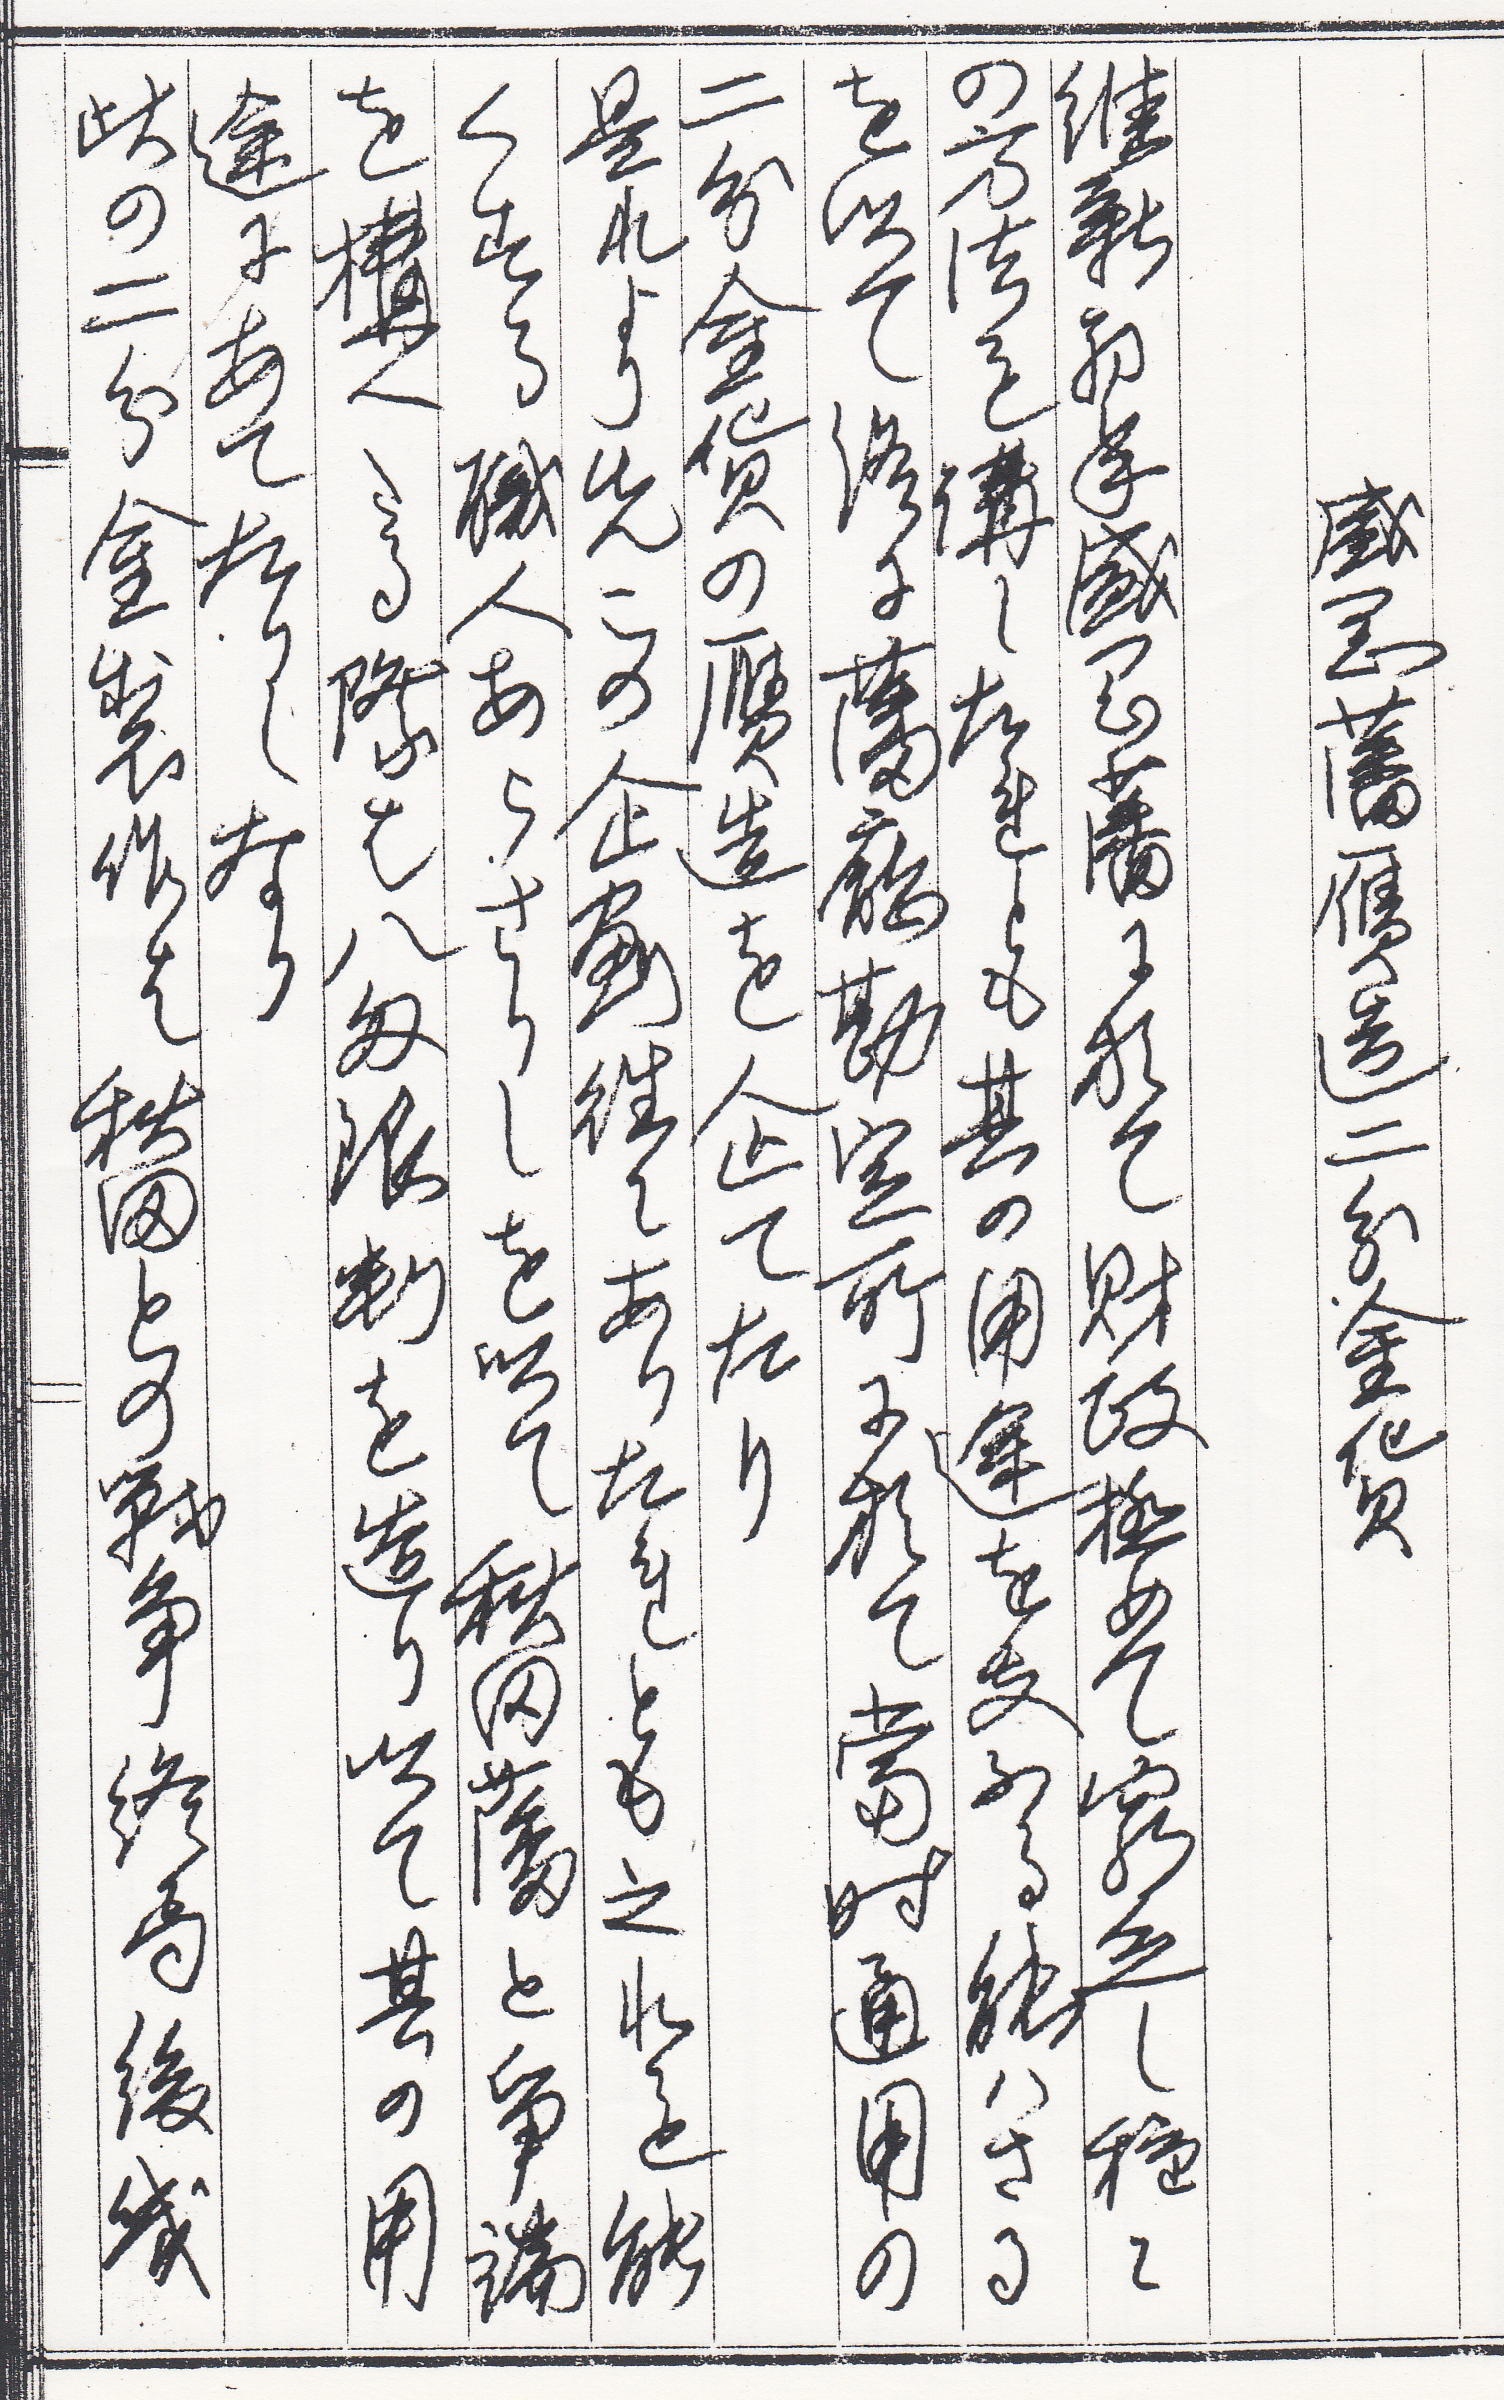 盛岡藩贋造二分金貨
維新初年盛岡藩に於て財政極めて窮乏し種々
の方法を講したれとも其の用途を支ふる能ハさる
を以て終に藩庁勘定所に於て當時通用の
二分金貨の贋造を企てたり
是れより先この企劃継てありたれとも之れを能
くする職人あらさりしを以て秋田藩と争端
を構へたる際も八匁銀判を造り以て其の用
途にあてたりしなり
此の二分金製作は秋田との戦争終局後幾